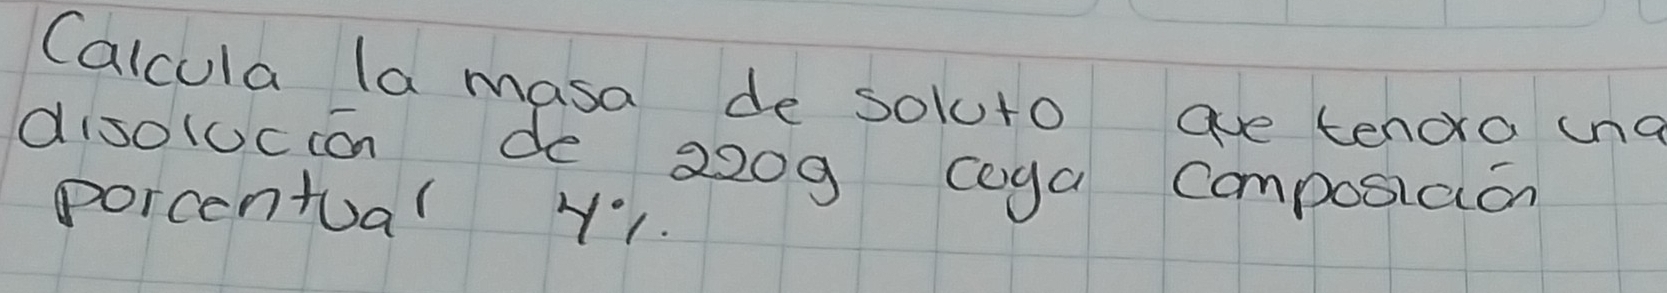 Calcula la masa de soluto que tendra una
disolución de 220g cuya composición
porcentual 4%.